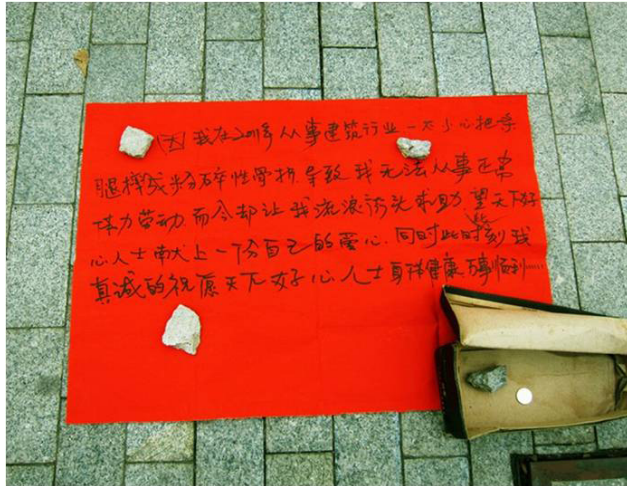 因我在深圳从事建筑行业一不小心把手
腿摔成粉碎性骨折.导致我无法从事正常
体力劳动.而今却让我流浪街头求助.望天下好
心人士献上一份自己的爱心.同时此时此刻我
真诚的祝愿天下好心人士身体健康万事顺利……